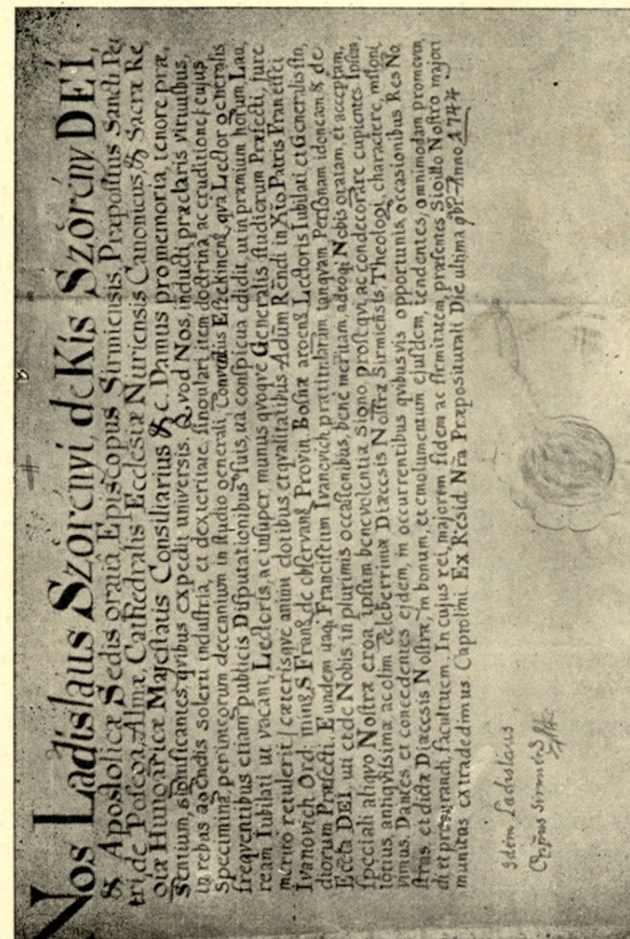 Nos Ladislaus Szörényi, de Kis Szörény DEI,
& Apostolicæ Sedis gratiâ Episcopus Sirmiensis, Præpositus Sancti Pe
tri de Posega, Almæ, Cathedralis Ecclesiæ Nitriensis Canonicus, & Sacræ Re
giæ Hungaricæ Majestatis Consiliarius &c. Damus pro memoria, tenore præ,
sentium, significantes, quibus expedit universis. Quod Nos, inducti præclaris virtutibus,
in rebus agendis solerti industria, et dexteritate, singulari item doctrina, ac eruditione, cujus
Specimina, per integrum decennium in studio generali, Conventus qua Lector generalis
frequentibus etiam publicis Disputationibus suis, ua conspicua edidit, ut in præmium horum Lau,
ream Iubilati ut vacani, Lectoris, ac insuper munus quoque Generalis studiorum Præfecti, jure
merito retulerit, cæterisque animi dotibus et qvalitatibus Adm Rendi in Xto Patris Francisci
Ivanovich Ord: min: S Franc: de observan: Provin. Bosnæ argen: Lectoris Iubilati et Generalis stu,
diorum Præfecti. Eundem itaq Franciscum Ivanovich prætitulatum, tanquam Personam idoneam, & de
Eccta DEI, uti et de Nobis in plurimis occasionibus, bene meritam, adeoq Nobis gratam, et acceptam,
speciali aliquo Nostræ erga ipsum benevolentiæ, Signo prosequi, ac condecorare cupientes. Ipsum,
totius antiquissimæ, ac olim celeberrimæ Diæcesis Nostræ Sirmiensis, Theologi, charactere, insigni
vimus. Dantes et concedentes ejdem, in occurrentibus quibusvis opportunis, occasionibus Res No
stras et dictæ Diæcesis Nostræ, in bonum, et emolumentum ejusdem, tendentes, omnimodam promoven,
di et procurandi, facultatem. In cujus rei, majorem fidem ac firmitatem, præsentes Sigillo Nostro majori
munitas extradedimus Caprolini Ex Resid Nra Præpositurali Die ultima 9br. Anno 1744
Idem Ladislaus
Eppus Sirmiens